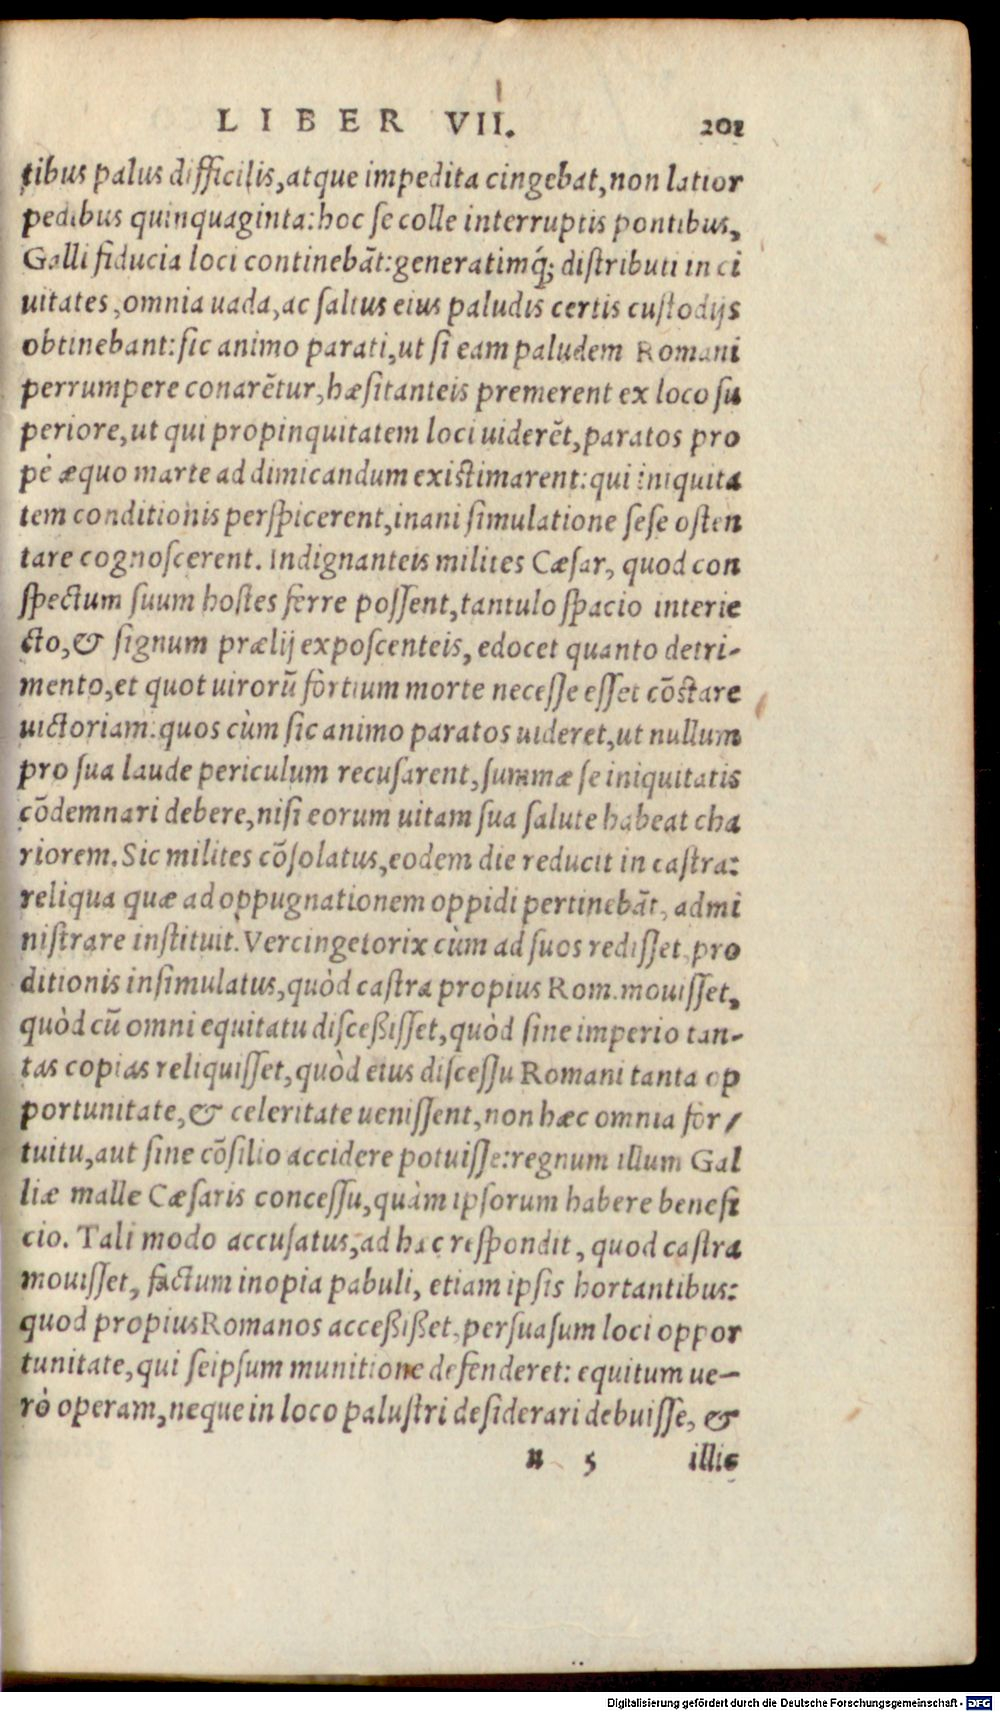 LIBER VII. 201
tibus palus difficilis, atque impedita cingebat, non latior
pedibus quinquaginta: hoc se colle interruptis pontibus,
Galli fiducia loci continebāt: generatimq́; distributi in ci
uitates, omnia uada, ac saltus eius paludis certis custodijs
obtinebant: sic animo parati, ut si eam paludem Romani
perrumpere conarētur, hæsitanteis premerent ex loco su
periore, ut qui propinquitatem loci uiderēt, paratos pro
pè æquo marte ad dimicandum existimarent: qui iniquita
tem conditionis perspicerent, inani simulatione sese osten
tare cognoscerent. Indignanteis milites Cæsar, quod con
spectum suum hostes ferre possent, tantulo spacio interie
cto, & signum prælij exposcenteis, edocet quanto detri-
mento, et quot uirorū fortium morte necesse esset cōstare
uictoriam: quos cùm sic animo paratos uideret, ut nullum
pro sua laude periculum recusarent, summæ se iniquitatis
cōdemnari debere, nisi eorum uitam sua salute habeat cha
riorem. Sic milites cōsolatus, eodem die reducit in castra:
reliqua quæ ad oppugnationem oppidi pertinebāt, admi
nistrare instituit. Vercingetorix cùm ad suos redisset, pro
ditionis insimulatus, quòd castra propius Rom. mouisset,
quòd cū omni equitatu discessisset, quòd sine imperio tan-
tas copias reliquisset, quòd eius discessu Romani tanta op
portunitate, & celeritate uenissent, non hæc omnia for/
tuitu, aut sine cōsilio accidere potuisse: regnum illum Gal
liæ malle Cæsaris concessu, quàm ipsorum habere benefi
cio. Tali modo accusatus, ad hæc respondit, quod castra
mouisset, factum inopia pabuli, etiam ipsis hortantibus:
quod propius Romanos accessisset, persuasum loci oppor
tunitate, qui seipsum munitione defenderet: equitum ue-
rò operam, neque in loco palustri desiderari debuisse, &
n 5 illic
Digitalisierung gefördert durch die Deutsche Forschungsgemeinschaft - DFG